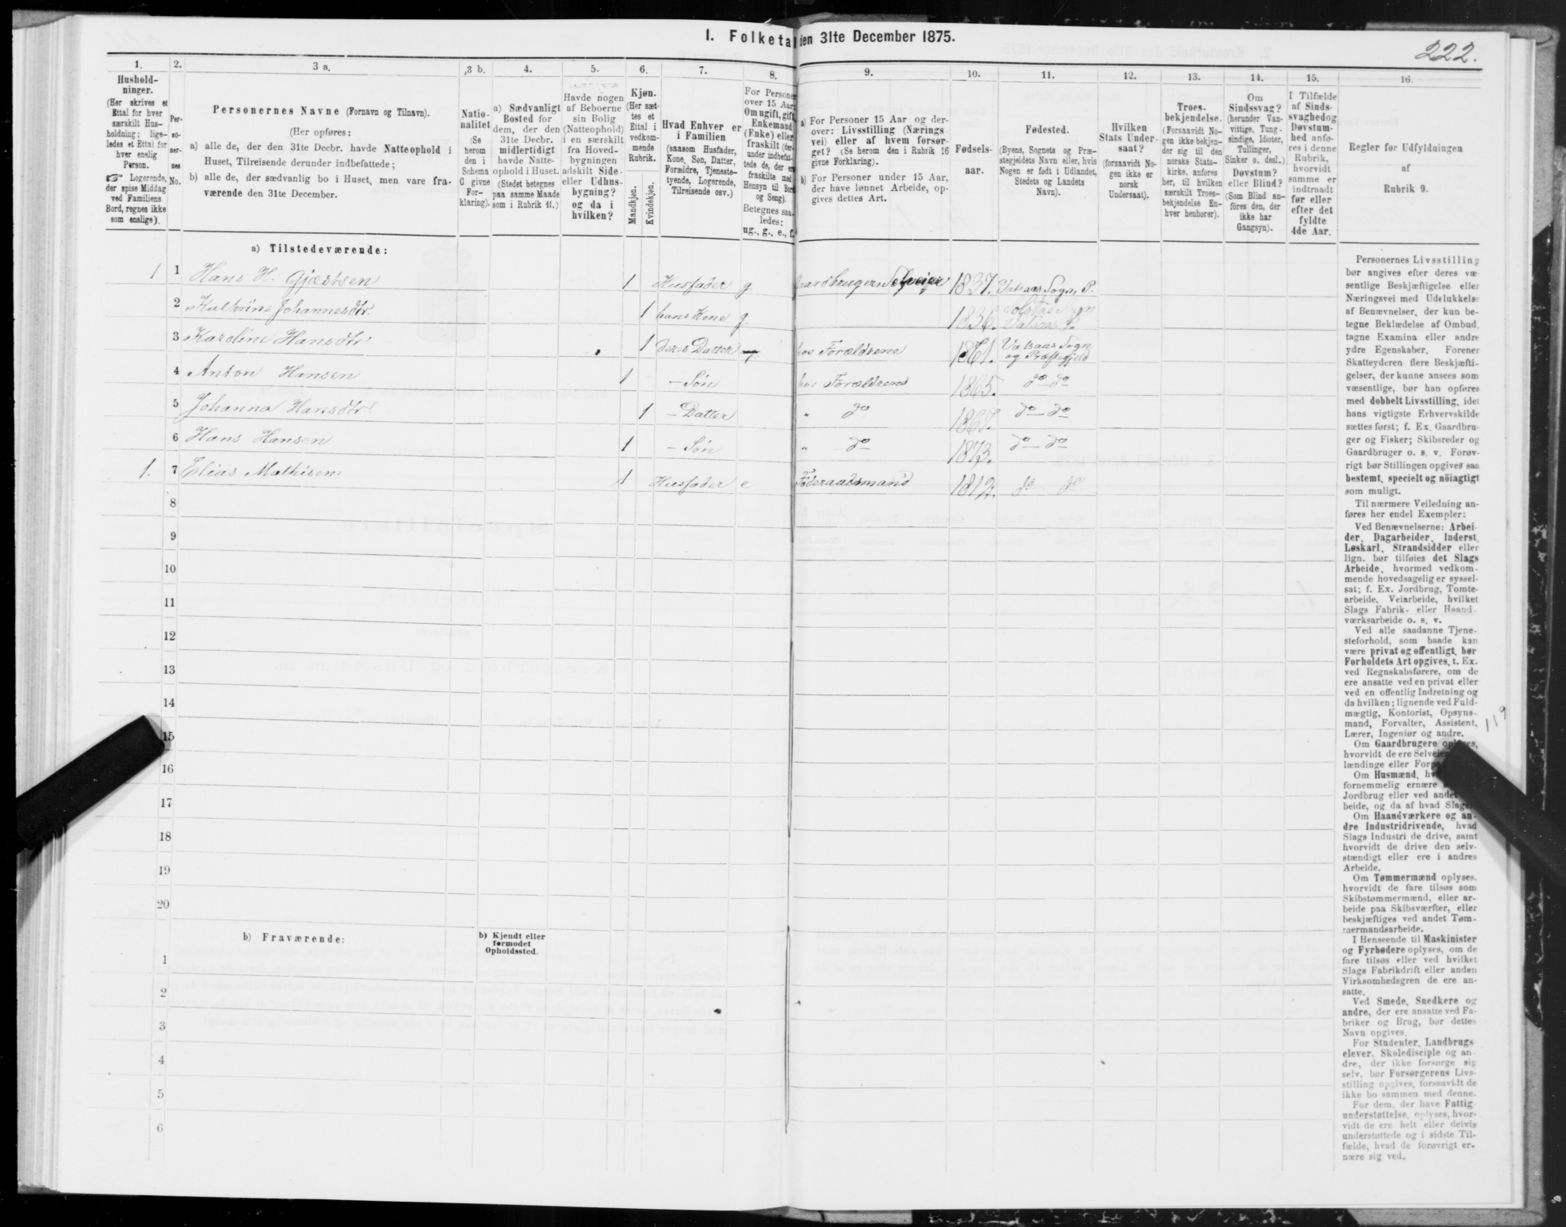 I. Folketal den 31te December 1875.
222.
1.
Hushold-
ninger.
(Her skrives et
Ettal for hver
særskilt Hus-
holdning; lige-
ledes et Ettal for
hver enslig
Person.
☞ Logerende,
der spise Middag
ved Familiens
Bord, regnes ikke
som enslige).
2.
Per-
so-
ner-
nes
No.
3 a.
Personernes Navne (Fornavn og Tilnavn).
(Her opføres:
a) alle de, der den 31te Decbr. havde Natteophold i
Huset, Tilreisende derunder indbefattede;
b) alle de, der sædvanlig bo i Huset, men vare fra-
værende den 31te December.
3 b.
Natio-
nalitet
(Se
herom
den i
Schema
C givne
For-
klaring).
4.
a) Sædvanligt
Bosted for
dem, der den
31te Decbr.
midlertidigt
havde Natte-
ophold i Huset.
(Stedet betegnes
paa samme Maade
som i Rubrik 11.)
5.
Havde nogen
af Beboerne
sin Bolig
(Natteophold)
i en særskilt
fra Hoved-
bygningen
adskilt Side-
eller Udhus-
bygning?
og da i
hvilken?
6.
Kjøn.
(Her sæt-
tes et
Ettal i
vedkom-
mende
Rubrik.
Mandkjøn.
Kvindekjøn.
7.
Hvad Enhver er
i Familien
(saasom Husfader,
Kone, Søn, Datter,
Forældre, Tjeneste-
tyende, Logerende,
Tilreisende osv.)
8.
For Personer
over 15 Aar:
Om ugift, gift,
Enkemand
(Enke) eller
fraskilt (der-
under indbefat-
tede de, der ere
fraskilte med
Hensyn til Bord
og Seng).
Betegnes saa-
ledes:
ug., g., e., f.
9.
a) For Personer 15 Aar og der-
over: Livsstilling (Nærings
vei) eller af hvem forsør-
get? (Se herom den i Rubrik 16
givne Forklaring).
b) For Personer under 15 Aar,
der have lønnet Arbeide, op-
gives dettes Art.
10.
Fødsels-
aar.
11.
Fødested.
(Byens, Sognets og Præ-
stegjeldets Navn eller, hvis
Nogen er født i Udlandet,
Stedets og Landets
Navn).
12.
Hvilken
Stats Under-
saat?
(forsaavidt No-
gen ikke er
norsk
Undersaat).
13.
Troes-
bekjendelse.
(Forsaavidt No-
gen ikke bekjen-
der sig til den
norske Stats-
kirke, anføres
her, til hvilken
særskilt Troes-
bekjendelse En-
hver henhører).
14.
Om
Sindssvag?
(herunder Van-
vittige, Tung-
sindige, Idioter,
Tullinger,
Sinker o. desl.)
Døvstum?
eller Blind?
(Som Blind an-
føres den, der
ikke har
Gangsyn).
15.
I Tilfælde
af Sinds-
svaghed og
Døvstum-
hed anfø-
res i denne
Rubrik,
hvorvidt
samme er
indtraadt
før eller
efter det
fyldte
4de Aar.
16.
Regler før Udfyldningen
af
Rubrik 9.
a) Tilstedeværende:
1 1 Hans H. Gjertsen 1 Husfader g. Gaardbruger, Selveier 1837. Vatsaas Sogn P.
2 Johannesdtr 1 hans Kone g. 1836.
3 Karoline Hansdtr 1 deres Datter hos Forældrene 1861. Vatsaas Sogn
og Præstegjeld
4 Anton Hansen 1 – Søn hos Forældrene 1865. do – do
5 Johanna Hansdtr 1 – Datter " do do – do
6 Hans Hansen 1 – Søn " do 1873. do – do
1. 7 Elias Mathisen 1 Husfader e Føderaadsmand 1812. do do
8
9
10
11
12
13
14
15
16
17
18
19
20
b) Fraværende:
b) Kjendt eller
formodet
Opholdssted.
1
2
3
4
5
6
Personernes Livsstilling
bør angives efter deres væ-
sentlige Beskjæftigelse eller
Næringsvei med Udelukkelse
af Benævnelser, der kun be-
tegne Beklædelse af Ombud,
tagne Examina eller andre
ydre Egenskaber. Forener
Skatteyderen flere Beskjæfti-
gelser, der kunne ansees som
væsentlige, bør han opføres
med dobbelt Livsstilling, idet
hans vigtigste Erhvervskilde
sættes først; f. Ex. Gaardbru-
ger og Fisker; Skibsreder og
Gaardbruger o. s. v. Forøv-
rigt bør Stillingen opgives saa
bestemt, specielt og nöiagtigt
som muligt.
Til nærmere Veiledning an-
føres her endel Exempler:
Ved Benævnelserne: Arbei-
der, Dagarbeider, Inderst,
Løskarl, Strandsidder eller
lign. bør tilføies det Slags
Arbeide, hvormed vedkom-
mende hovedsagelig er syssel-
sat; f. Ex. Jordbrug, Tomte-
arbeide, Veiarbeide, hvilket
Slags Fabrik- eller Haand-
værksarbeide o. s. v.
Ved alle saadanne Tjene-
steforhold, som baade kan
være privat og offentligt, bør
Forholdets Art opgives, t. Ex.
ved Regnskabsførere, om de
ere ansatte ved en privat eller
ved en offentlig Indretning og
da hvilken; lignende ved Fuld-
mægtig, Kontorist, Opsyns-
mand, Forvalter, Assistent,
Lærer, Ingeniør og andre.
119
Om Gaardbrugere
hvorvidt de ere
lændinge eller
Om Husmænd,
fornemmelig ernære
Jordbrug eller ved
beide, og da af hvad
Om Haandværkere og an-
dre Industridrivende, hvad
Slags Industri de drive, samt
hvorvidt de drive den selv-
stændigt eller ere i andres
Arbeide.
Om Tømmermænd oplyses,
hvorvidt de fare tilsøs som
Skibstømmermænd, eller ar-
beide paa Skibsværfter, eller
beskjæftiges ved andet Tøm-
mermandsarbeide.
I Henseende til Maskinister
og Fyrbødere oplyses, om de
fare tilsøs eller ved hvilket
Slags Fabrikdrift eller anden
Virksomhedsgren de ere an-
satte.
Ved Smede, Snedkere og
andre, der ere ansatte ved Fa-
briker og Brug, bør dettes
Navn opgives.
For Studenter, Landbrugs
elever, Skoledisciple og an-
dre, der ikke forsørge sig
selv, bør Forsørgerens Livs-
stilling opgives, forsaavidt de
ikke bo sammen med denne.
For dem, der have Fattig-
understøttelse, oplyses, hvor-
vidt de ere helt eller delvis
understøttede og i sidste Til-
fælde, hvad de forøvrigt er-
nære sig ved.